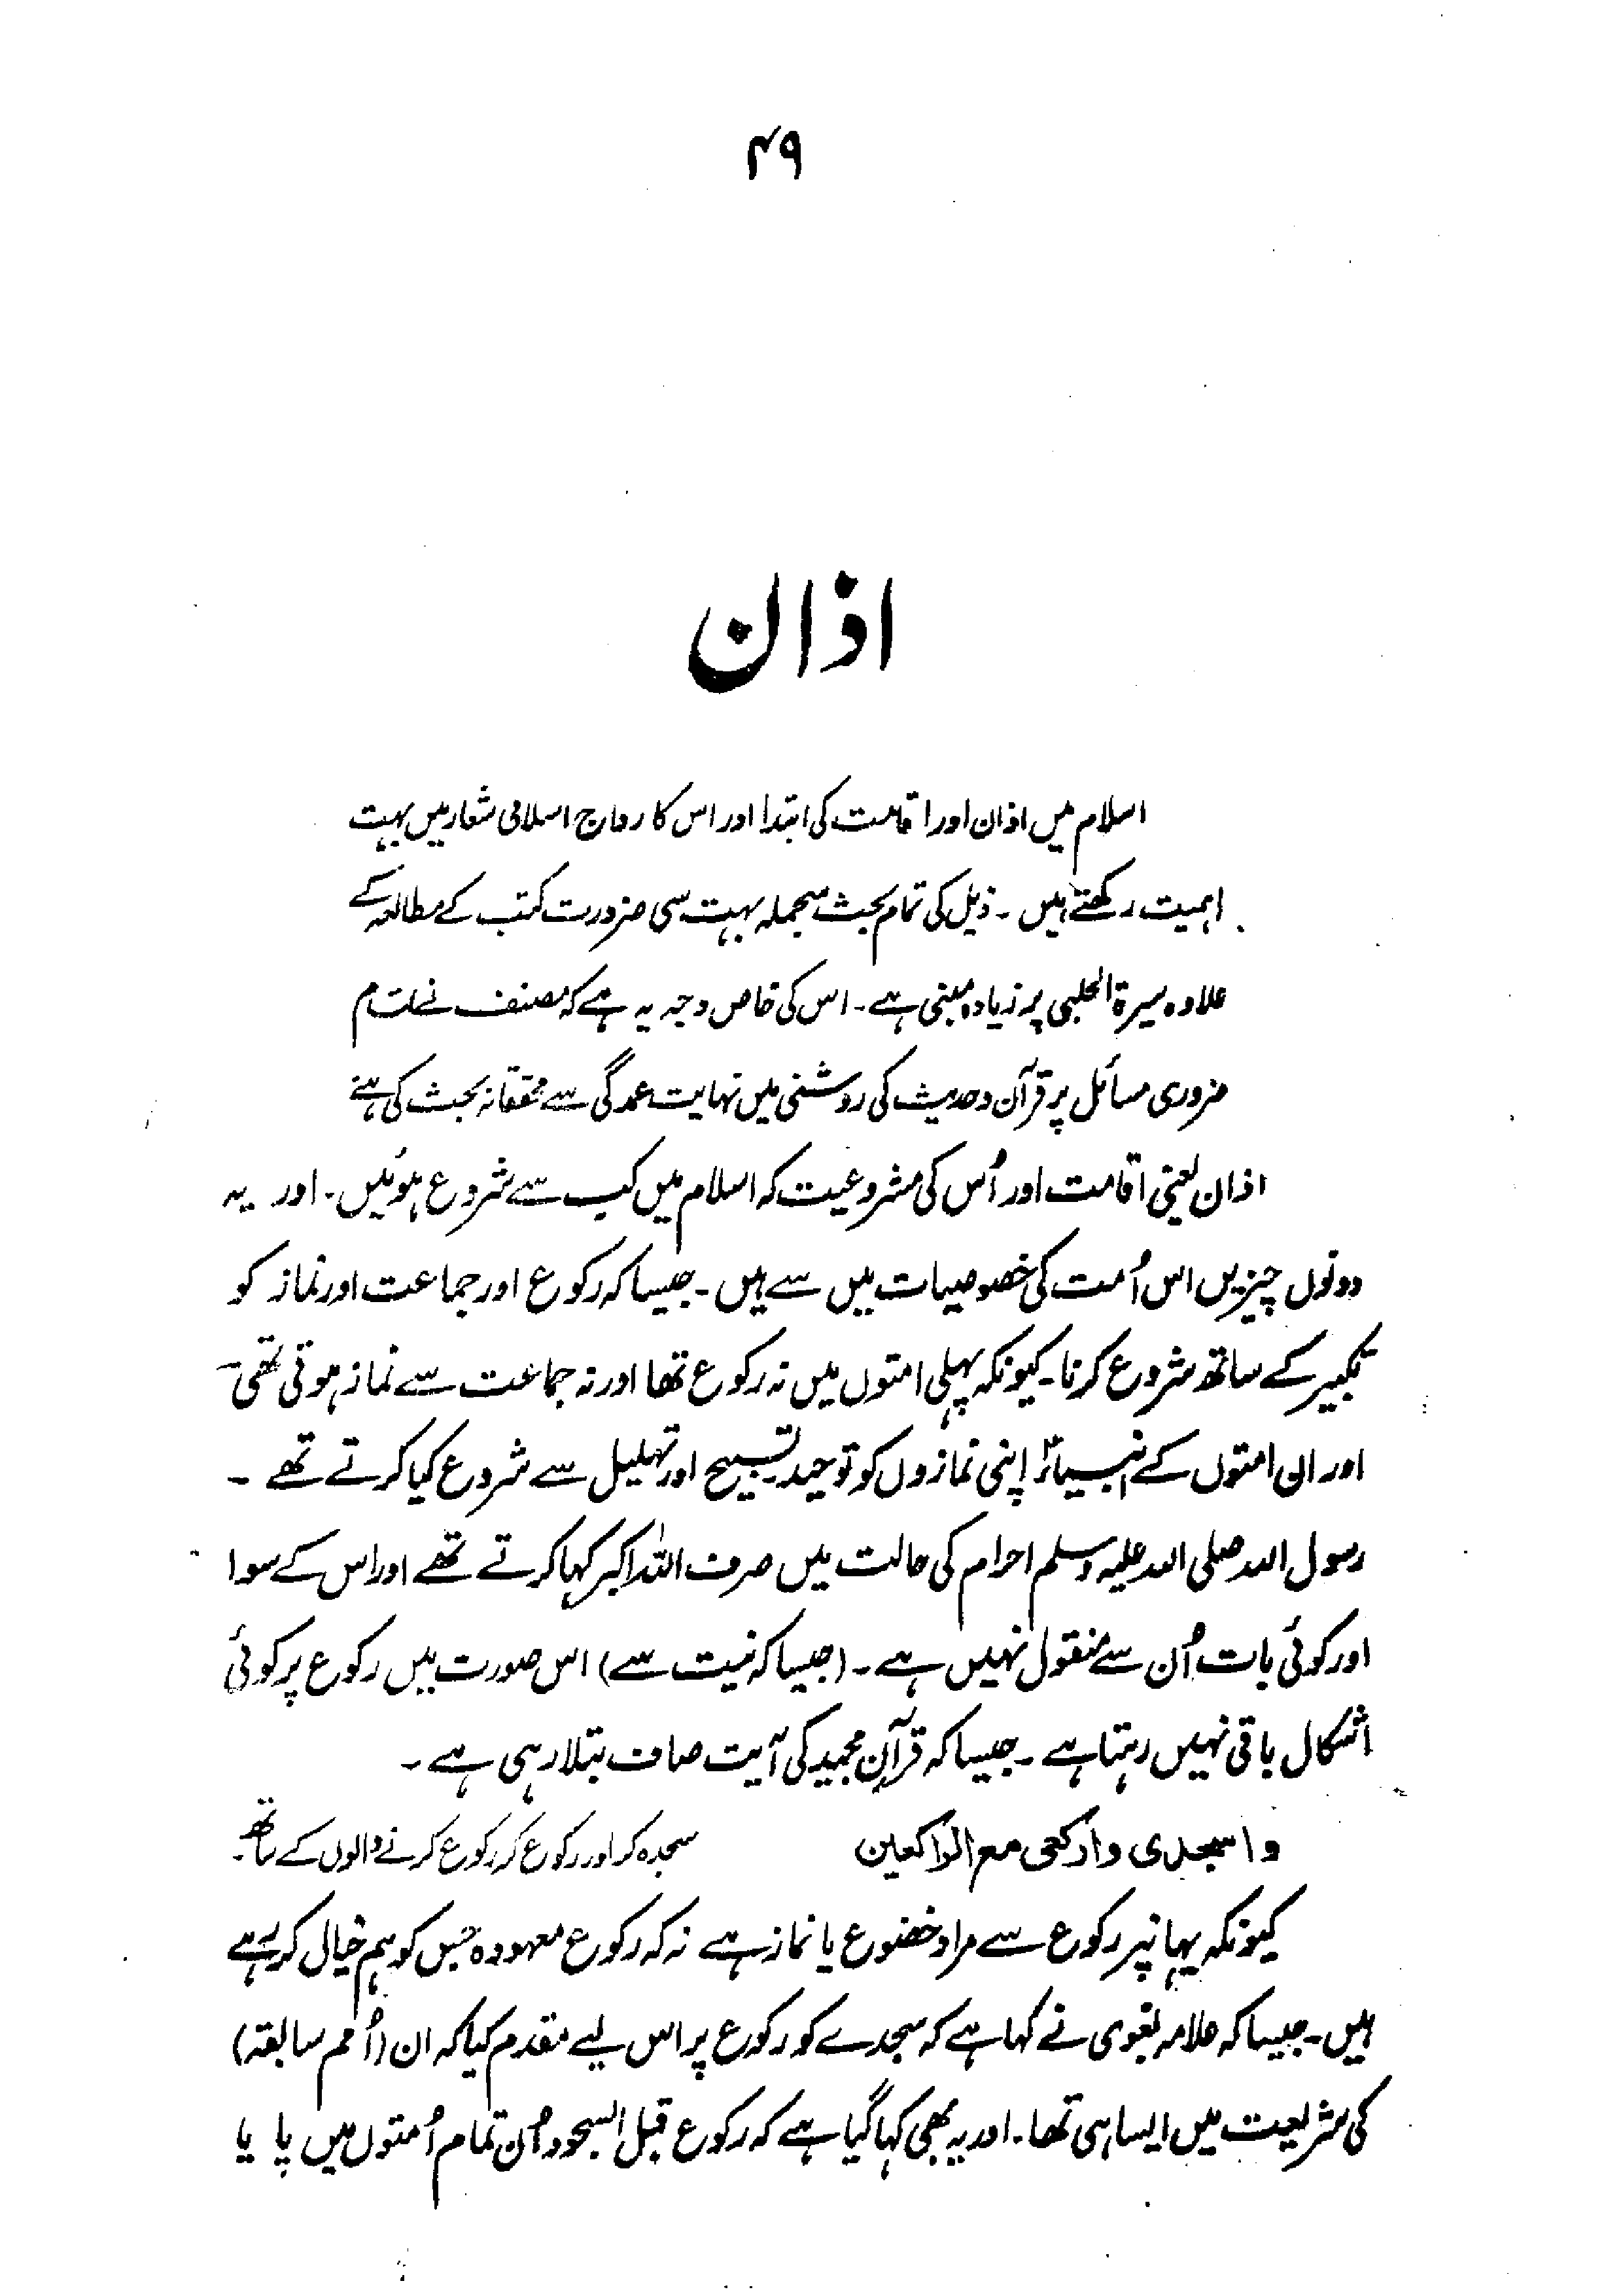 ۴۹
اذان
اسلام میں اذان اور اقامت کی ابتدا اور اس کا رواج اسلامی شعار میں بہت
اہمیت رکھتے ہیں ۔ ذیل کی تمام بحث منجملہ بہت سی ضرورت کتب کے مطالعہ کے
علاوہ سیرۃ الحلبی پر زیادہ مبنی ہے ۔ اس کی خاص وجہ یہ ہے کہ مصنف نے تمام
ضروری مسائل پر قرآن و حدیث کی روشنی میں نہایت عمدگی سے محققانہ بحث کی ہے
اذان یعنی اقامت اور اُس کی مشروعیت کہ اسلام میں کب سے شروع ہوئیں ۔ اور یہ
دونوں چیزیں اس اُمت کی خصوصیات میں سے ہیں ۔ جیسا کہ رکوع اور جماعت اور نماز کو
تکبیر کے ساتھ شروع کرنا ۔ کیونکہ پہلی امتوں میں نہ رکوع تھا اور نہ جماعت سے نماز ہوتی تھی ۔
اور ان امتوں کے انبیاؑ اپنی نمازوں کو توحید تسبیح اور تہلیل سے شروع کیا کرتے تھے ۔
رسول اللہ صلی اللہ علیہ وسلم احرام کی حالت میں صرف اللہ اکبر کہا کرتے تھے اور اس کے سوا
اور کوئی بات اُن سے منقول نہیں ہے ۔ (جیسا کہ نیت سے) اس صورت میں رکوع پر کوئی
اشکال باقی نہیں رہتا ہے ۔ جیسا کہ قرآن مجید کی آیت صاف بتلا رہی ہے ۔
واسجدی وارکعی مع الراکعین سجدہ کر اور رکوع کر رکوع کرنے والوں کے ساتھ ۔
کیونکہ یہانپر رکوع سے مراد خضوع یا نماز ہے نہ کہ رکوع معہودہ جس کو ہم خیال کر رہے
ہیں ۔ جیسا کہ علامہ بغوی نے کہا ہے کہ سجدے کو رکوع پر اس لیے مقدم کیا کہ ان (اُمم سابقہ)
کی شریعت میں ایسا ہی تھا ۔ اور یہ بھی کہا گیا ہے کہ رکوع قبل السجود اُن تمام اُمتوں میں پا یا